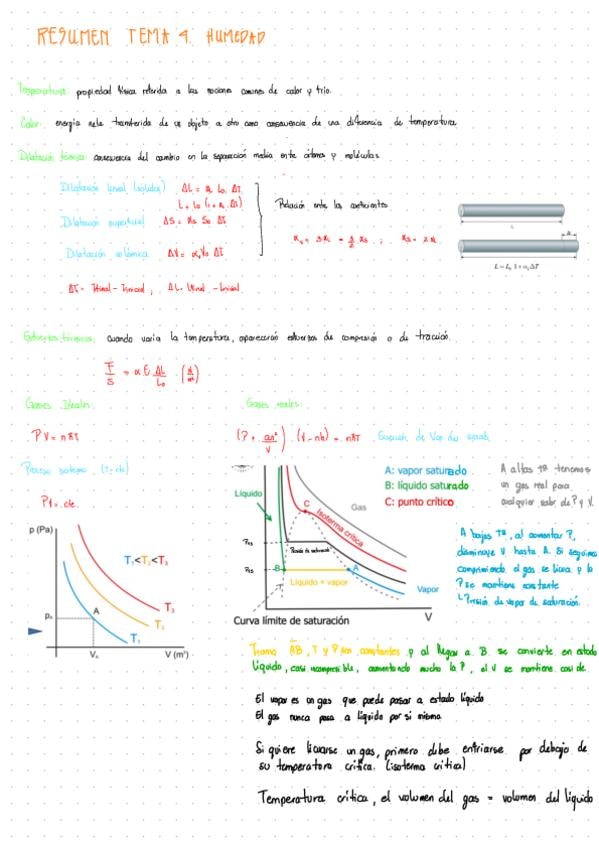 RESUMEN TEMA 4: HUMEDAD
Temperatura: propiedad física referida a las nociones comunes de calor y frío.
Calor: energía neta transferida de un objeto a otro como consecuencia de una diferencia de temperatura
Dilatación térmica: consecuencia del cambio en la separación media entre átomos y moléculas.
Dilatación lineal (sólidos) ΔL = α L₀ ΔT
Dilatación superficial ΔS = αs S₀ ΔT
Dilatación volúmica ΔV = αv V₀ ΔT
Relación entre los coeficientes
ΔT = Tfinal - Tinicial ; ΔL = Lfinal - Linicial
Esfuerzos térmicos: cuando varia la temperatura, aparecerán esfuerzos de compresión o de tracción.
F/S = α E ΔL/L₀
Gases Ideales:
PV = nRT
Pv = cte.
p (Pa)
T₁<T₂<T₃
A
T₃
T₂
T₁
V (m³)
Gases reales:
A: vapor saturado
B: líquido saturado
C: punto crítico
Líquido
C
Gas
Isoterma crítica
B
A
Líquido + vapor
Vapor
V
Curva límite de saturación
A altas tª tenemos
un gas real para
cualquier valor de P y V.
A bajas tª, al aumentar P,
disminuye V hasta A. Si seguimos
comprimiendo el gas se licua y la
P se mantiene constante
Presión de vapor de saturación.
Tramo AB, T y P son constantes y al llegar a B se convierte en estado
líquido, casi incompresible, aumentando mucho la P, el V se mantiene casi cte.
El vapor es un gas que puede pasar a estado líquido
El gas nunca pasa a líquido por si mismo
Si quiere licuarse un gas, primero debe enfriarse por debajo de
su temperatura crítica. (isoterma crítica)
Temperatura crítica, el volumen del gas = volumen del líquido